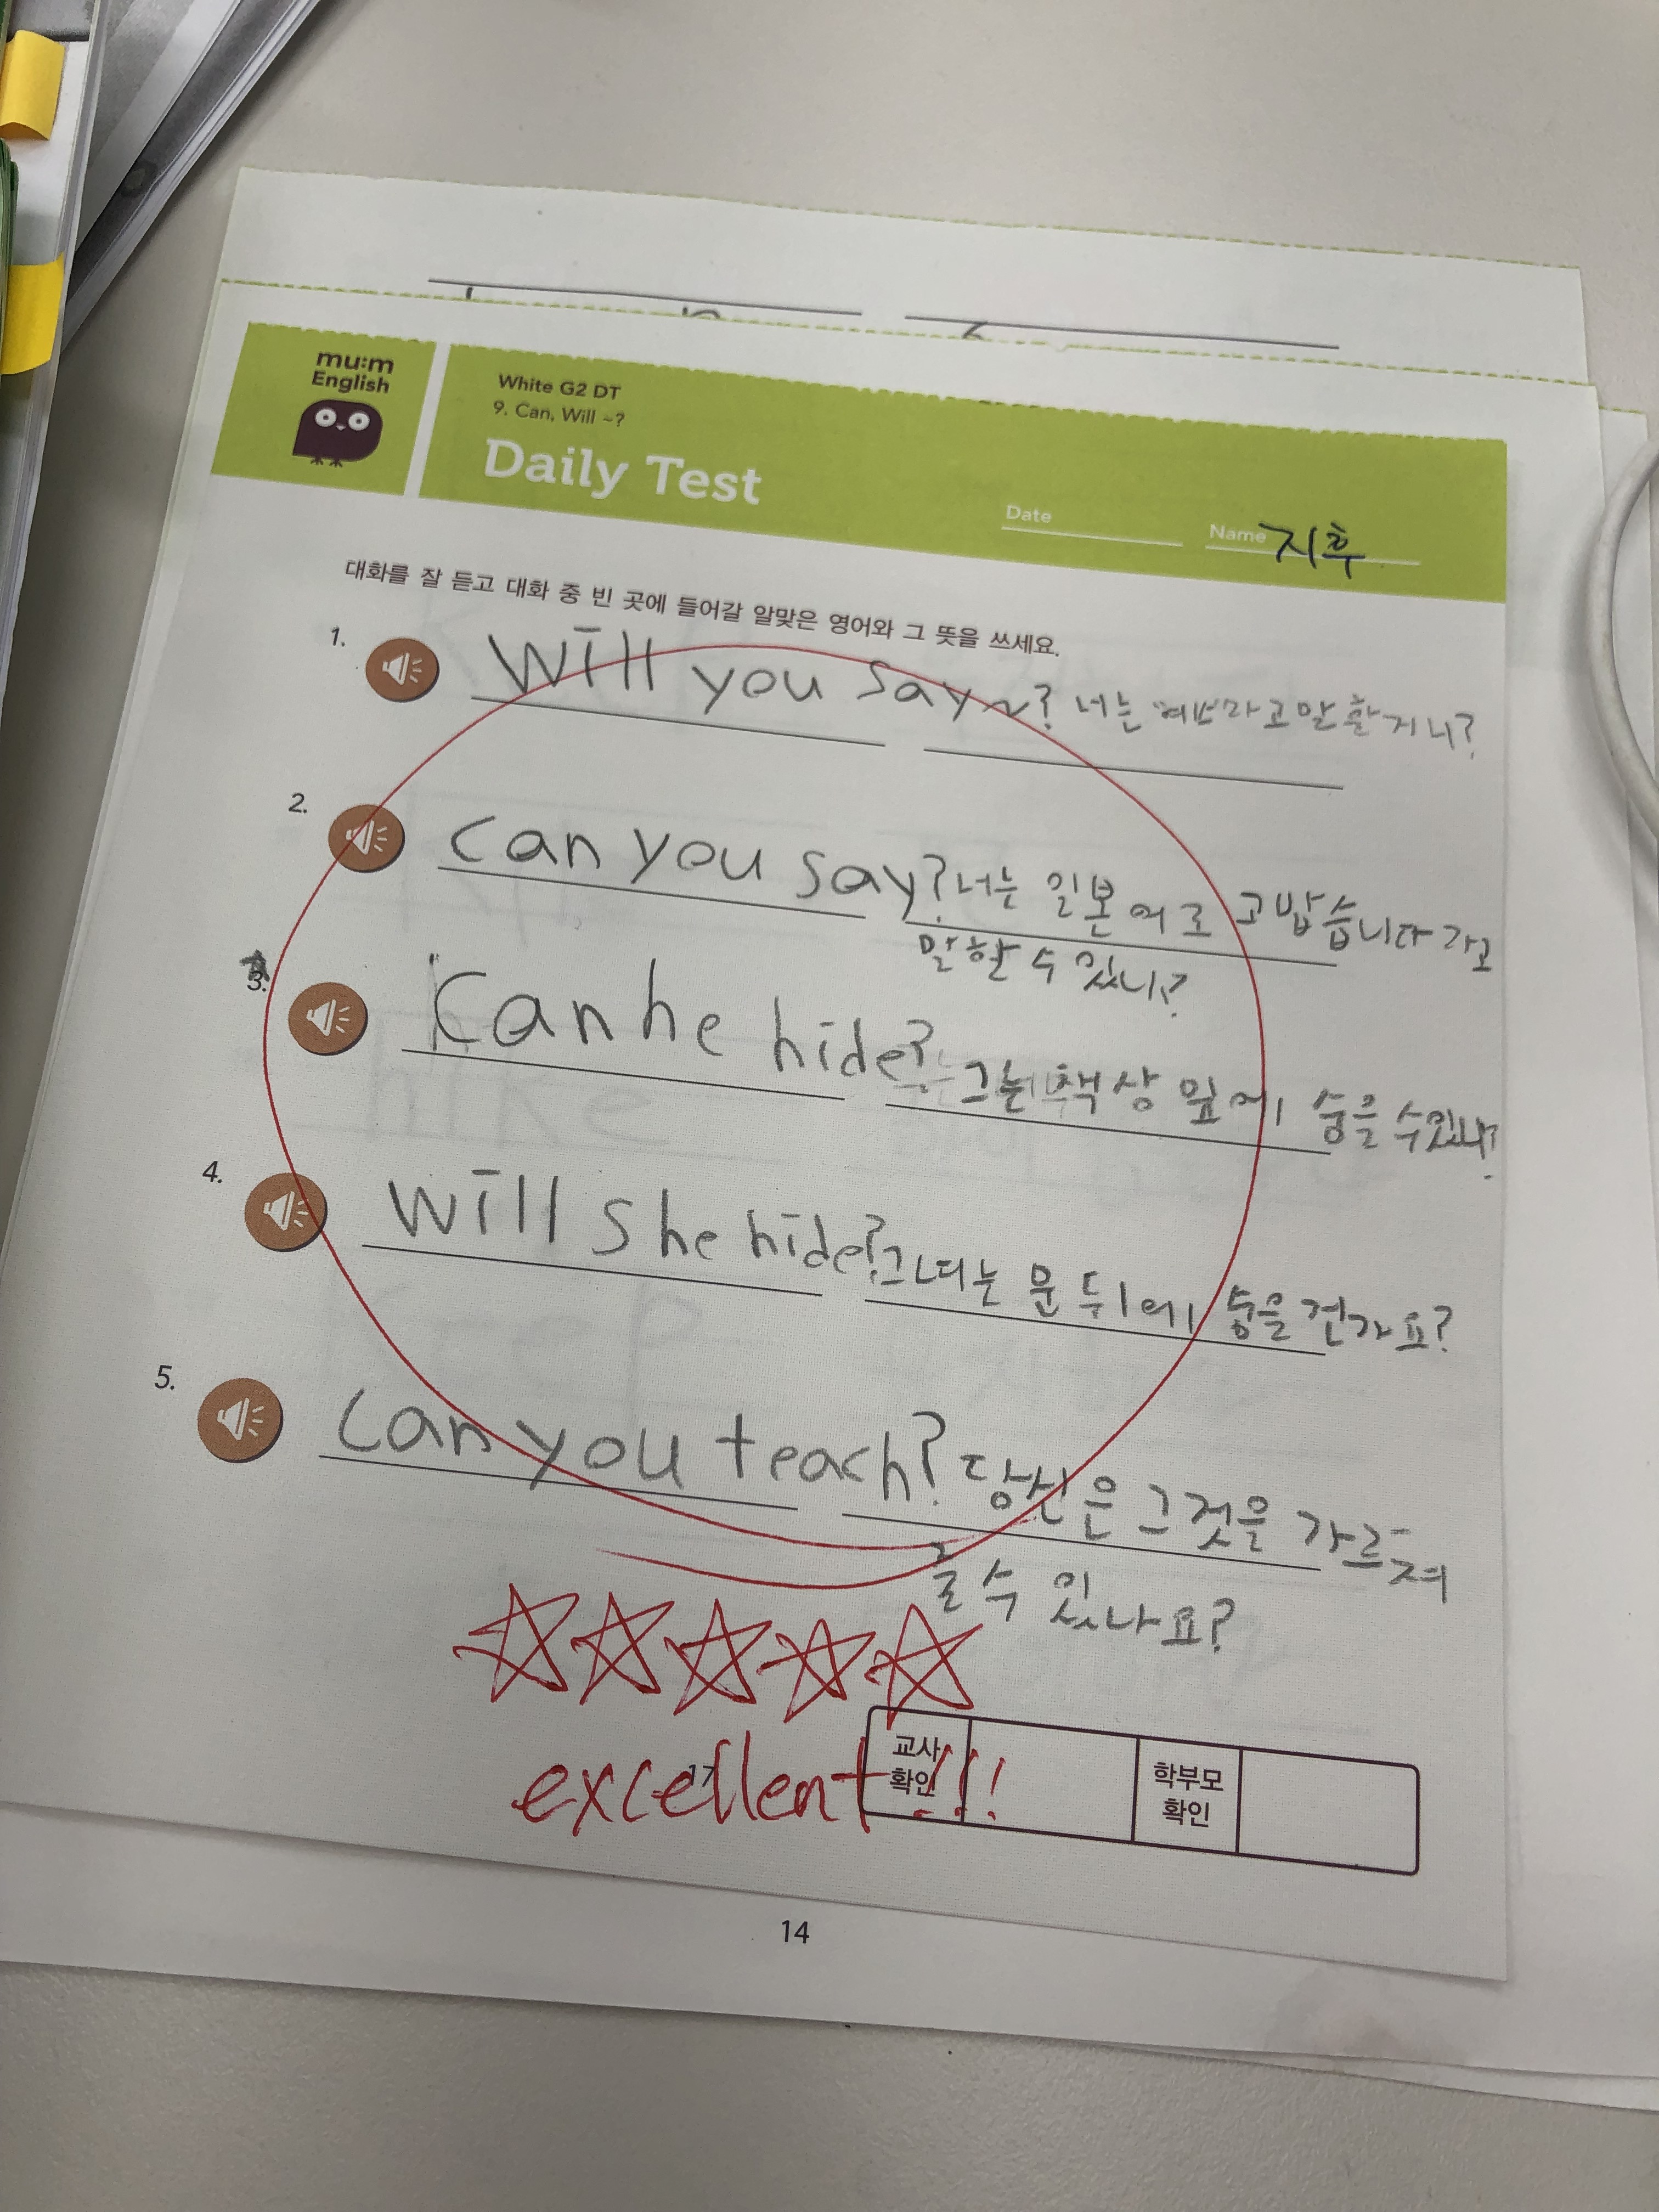 mu:m
English
White G2 DT
9. Can, Will ~?
Daily Test
Date
Name 지후
대화를 잘 듣고 대화 중 빈 곳에 들어갈 알맞은 영어와 그 뜻을 쓰세요.
1. Will you say ~? 너는 말할거니?
2. can you say? 너는 일본어로 고맙습니다 라고
말할 수 있니?
3. Can he hide? 그는 책상 옆에 숨을 수있니?
4. Will she hide? 그녀는 문 뒤에 숨을 건가요?
5. Can you teach? 당신은 그것을 가르쳐
줄 수 있나요?
excellent!!!
교사
확인
학부모
확인
14